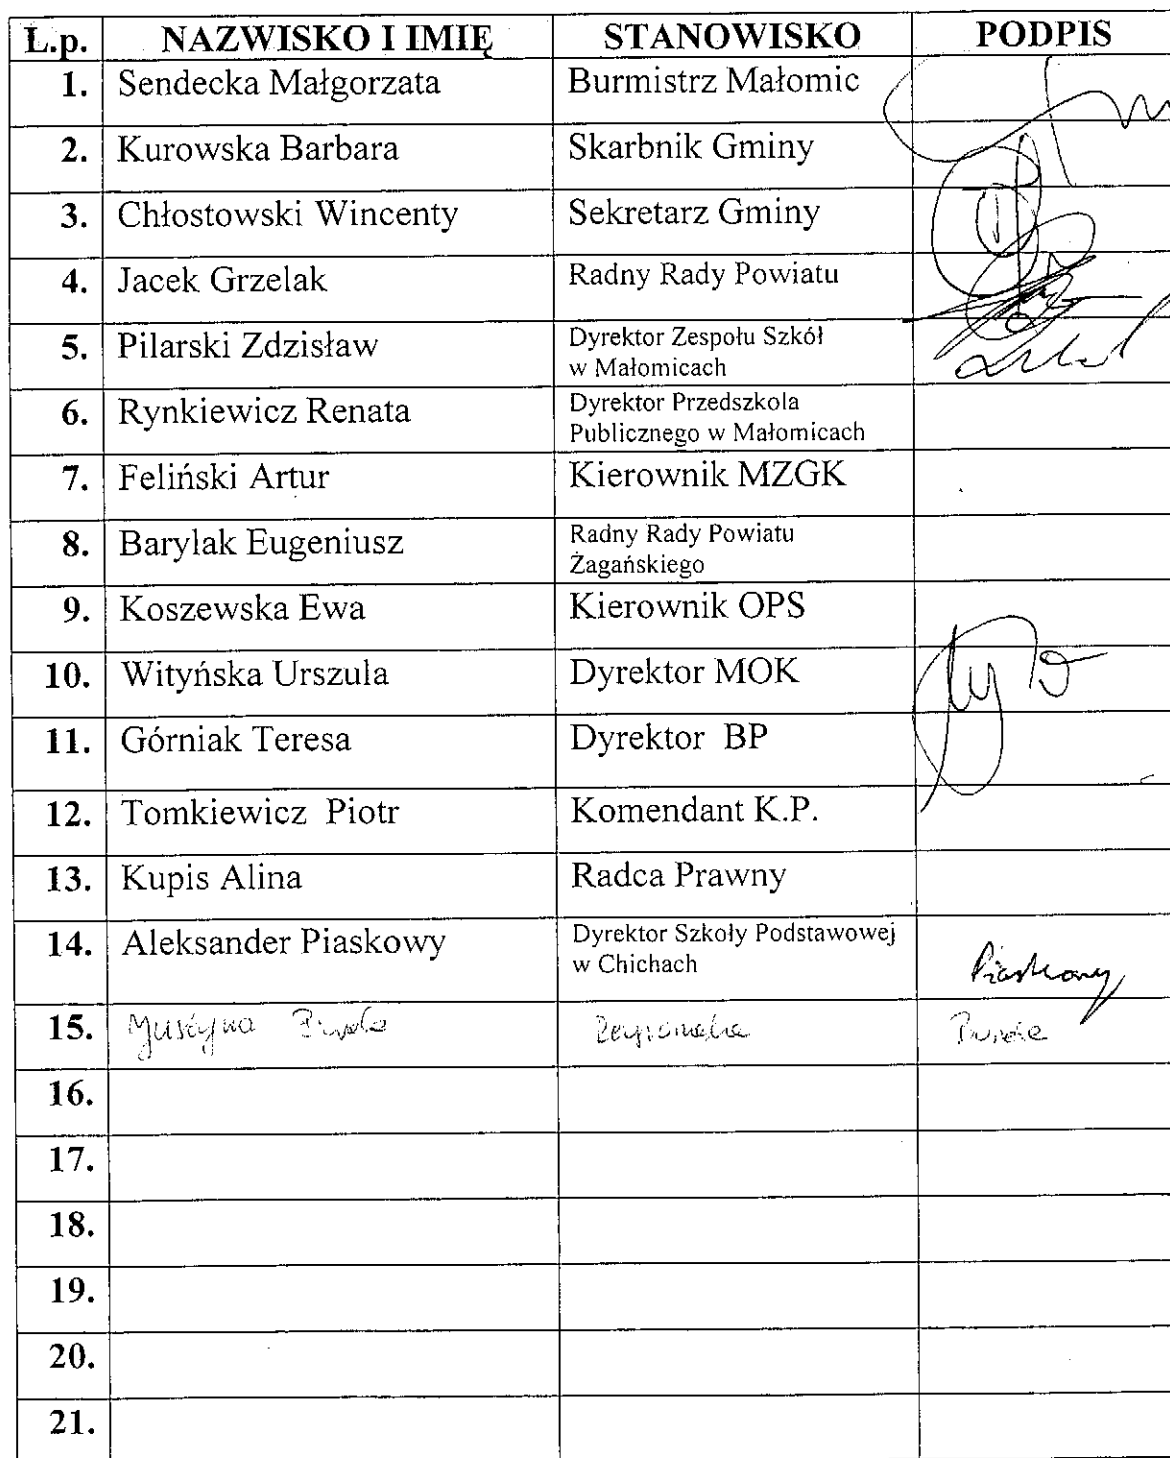 L.p. NAZWISKO I IMIĘ STANOWISKO PODPIS
1. Sendecka Małgorzata Burmistrz Małomic
2. Kurowska Barbara Skarbnik Gminy
3. Chłostowski Wincenty Sekretarz Gminy
4. Jacek Grzelak Radny Rady Powiatu
5. Pilarski Zdzisław Dyrektor Zespołu Szkół
w Małomicach
6. Rynkiewicz Renata Dyrektor Przedszkola
Publicznego w Małomicach
7. Feliński Artur Kierownik MZGK
8. Barylak Eugeniusz Radny Rady Powiatu
Żagańskiego
9. Koszewska Ewa Kierownik OPS
10. Wityńska Urszula Dyrektor MOK
11. Górniak Teresa Dyrektor BP
12. Tomkiewicz Piotr Komendant K.P.
13. Kupis Alina Radca Prawny
14. Aleksander Piaskowy Dyrektor Szkoły Podstawowej
w Chichach Piaskowy
15. Justyna
16.
17.
18.
19.
20.
21.